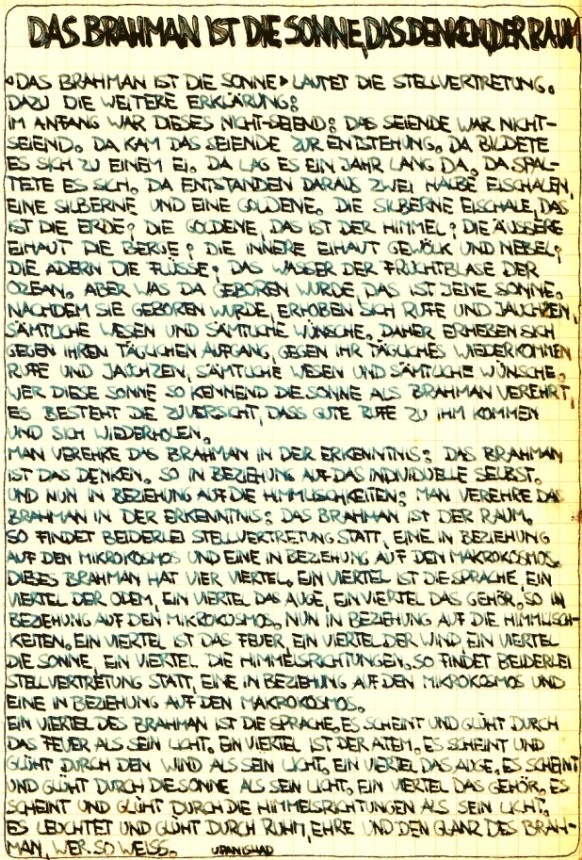 DAS BRAHMAN IST DIE SONNE, DAS DENKEN, DER RAUM
«DAS BRAHMAN IST DIE SONNE» LAUTET DIE STELLVERTRETUNG.
DAZU DIE WEITERE ERKLÄRUNG:
IM ANFANG WAR DIESES NICHT-SEIEND: DAS SEIENDE WAR NICHT-
SEIEND. DA KAM DAS SEIENDE ZUR ENTSTEHUNG. DA BILDETE
ES SICH ZU EINEM EI. DA LAG ES EIN JAHR LANG DA. DA SPAL-
TETE ES SICH. DA ENTSTANDEN DARAUS ZWEI HALBE EISCHALEN,
EINE SILBERNE UND EINE GOLDENE. DIE SILBERNE EISCHALE, DAS
IST DIE ERDE; DIE GOLDENE, DAS IST DER HIMMEL; DIE ÄUSSERE
EIHAUT DIE BERGE; DIE INNERE EIHAUT GEWÖLK UND NEBEL;
DIE ADERN DIE FLÜSSE; DAS WASSER DER FRUCHTBLASE DER
OZEAN. ABER WAS DA GEBOREN WURDE, DAS IST JENE SONNE.
NACHDEM SIE GEBOREN WURDE, ERHOBEN SICH RUFE UND JAUCHZEN,
SÄMTLICHE WESEN UND SÄMTLICHE WÜNSCHE. DAHER ERHEBEN SICH
GEGEN IHREN TÄGLICHEN AUFGANG, GEGEN IHR TÄGLICHES WIEDERKOMMEN
RUFE UND JAUCHZEN, SÄMTLICHE WESEN UND SÄMTLICHE WÜNSCHE.
WER DIESE SONNE SO KENNEND DIE SONNE ALS BRAHMAN VEREHRT,
ES BESTEHT DIE ZUVERSICHT, DASS GUTE RUFE ZU IHM KOMMEN
UND SICH WIEDERHOLEN.
MAN VEREHRE DAS BRAHMAN IN DER ERKENNTNIS: DAS BRAHMAN
IST DAS DENKEN. SO IN BEZIEHUNG AUF DAS INDIVIDUELLE SELBST.
UND NUN IN BEZIEHUNG AUF DIE HIMMLISCHKEITEN: MAN VEREHRE DAS
BRAHMAN IN DER ERKENNTNIS: DAS BRAHMAN IST DER RAUM.
SO FINDET BEIDERLEI STELLVERTRETUNG STATT, EINE IN BEZIEHUNG
AUF DEN MIKROKOSMOS UND EINE IN BEZIEHUNG AUF DEN MAKROKOSMOS.
DIESES BRAHMAN HAT VIER VIERTEL, EIN VIERTEL IST DIE SPRACHE, EIN
VIERTEL DER ODEM, EIN VIERTEL DAS AUGE, EIN VIERTEL DAS GEHÖR, SO IN
BEZIEHUNG AUF DEN MIKROKOSMOS, NUN IN BEZIEHUNG AUF DIE HIMMLISCH-
KEITEN. EIN VIERTEL IST DAS FEUER, EIN VIERTEL DER WIND, EIN VIERTEL
DIE SONNE, EIN VIERTEL DIE HIMMELSRICHTUNGEN. SO FINDET BEIDERLEI
STELLVERTRETUNG STATT, EINE IN BEZIEHUNG AUF DEN MIKROKOSMOS UND
EINE IN BEZIEHUNG AUF DEN MAKROKOSMOS.
EIN VIERTEL DES BRAHMAN IST DIE SPRACHE, ES SCHEINT UND GLÜHT DURCH
DAS FEUER ALS SEIN LICHT. EIN VIERTEL IST DER ATEM, ES SCHEINT UND
GLÜHT DURCH DEN WIND ALS SEIN LICHT, EIN VIERTEL DAS AUGE, ES SCHEINT
UND GLÜHT DURCH DIE SONNE ALS SEIN LICHT, EIN VIERTEL DAS GEHÖR, ES
SCHEINT UND GLÜHT DURCH DIE HIMMELSRICHTUNGEN ALS SEIN LICHT.
ES LEUCHTET UND GLÜHT DURCH RUHM, EHRE UND DEN GLANZ DES BRAH-
MAN, WER SO WEISS. UPANISHAD